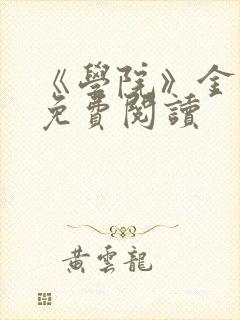 《學院》全
免費閱讀
黃雲龍